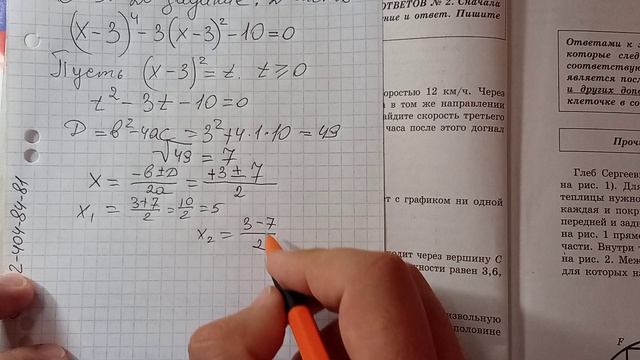 (x-3)⁴-3(x-3)²-10=0
Пусть (x-3)²=t. t≥0
t²-3t-10=0
D=в²-4ас=3²+4·1·10=49
√49=7
X=(-в±D)/2a=(+3±7)/2
x₁=(3+7)/2=10/2=5
x₂=(3-7)/2
2-404-84-81
ОТВЕТОВ № 2. Сначала
ние и ответ. Пишите
оростью 12 км/ч. Через
в том же направлении
айдите скорость третьего
часа после этого догнал
т с графиком ни одной
дит через вершину С
жности равен 3,6,
извольную
половине
Ответами к
которые след
соответствую
является посл
и других допо
клеточке в со
Проч
Глеб Сергееви
на рис. 1). Для
теплицы нужно
каждая и покр
передней и задн
на рис. 1 прямо
части. Внутри
на рис. 2. Меж
для которых на
F